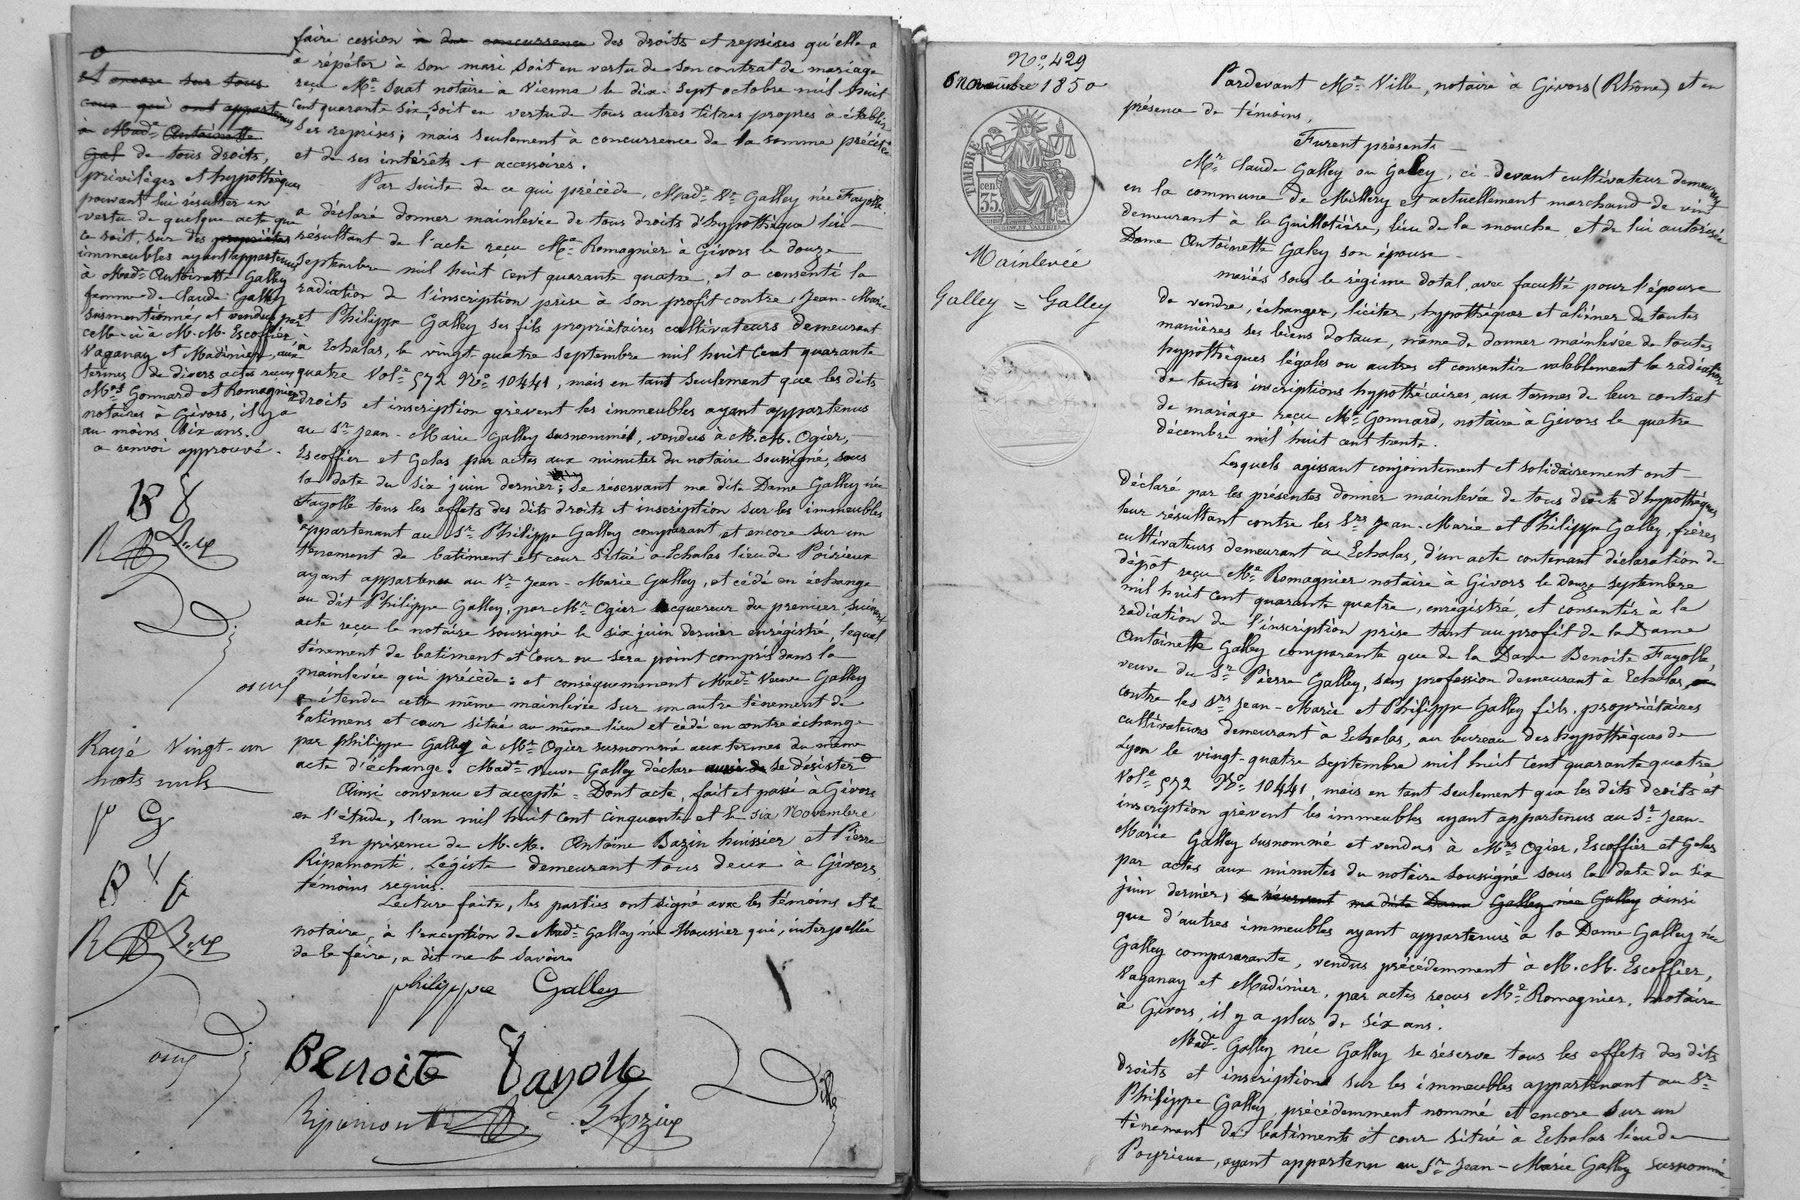 faire cession à due concurrence des droits et reprises qu'elle a
à répéter à son mari soit en vertu de son contrat de mariage
reçu Me Suat notaire à Vienne le dix-sept octobre mil huit
cent quarante six, soit en vertu de tous autres titres propres à établir
ses reprises; mais seulement à concurrence de la somme précitée
et de ses intérêts et accessoires.
Par suite de ce qui précède, Made Ve Galley née Fayolle
a déclaré donner mainlevée de tous droits d'hypothèque lui
résultant de l'acte reçu Me Romagnier à Givors le douze
septembre mil huit cent quarante quatre, et a consenti la
radiation de l'inscription prise à son profit contre Jean-Marie
et Philippe Galley ses fils propriétaires cultivateurs demeurant
à Echalas, le vingt quatre septembre mil huit cent quarante
quatre Vole 572 No 10441, mais en tant seulement que les dits
droits et inscription grèvent les immeubles ayant appartenus
au Sr Jean-Marie Galley susnommé, vendus à M.M. Ogier,
Escoffier et Galas par actes aux minutes du notaire soussigné, sous
la date du six juin dernier; se réservant ma dite Dame Galley née
Fayolle tous les effets des dits droits et inscription sur les immeubles
appartenant au Sr Philippe Galley comparant et encore sur un
tènement de batiment et cour situé à Echalas lieu de Poirieux
ayant appartenu au Sr Jean-Marie Galley, et cédé en échange
au dit Philippe Galley, par Mr Ogier acquereur du premier suivant
acte reçu le notaire soussigné le six juin dernier enrégistré, lequel
tènement de batiment et cour ou sera point compris dans la
mainlevée qui précède: et conséquemment Made Veuve Galley
étendu cette même mainlevée sur un autre tènement de
batimens et cour situé au même lieu et cédé en contre échange
par Philippe Galley à Mr Ogier susnommé aux termes du même
acte d'échange. Made Veuve Galley déclare aussi de se désister
Ainsi convenu et accepté = Dont acte, fait et passé à Givors
en l'étude, l'an mil huit cent cinquante et le six Novembre
En présence de M.M. Antoine Bazin huissier et Pierre
Ripamonti, Légiste demeurant tous deux à Givors,
témoins requis.
Lecture faite, les parties ont signé avec les témoins et le
notaire, à l'exception de Made Galley née Moussier qui, interpellée
de le faire, a dit ne le savoir.
philippe Galley
Benoite Fayolle
Ripamonti
Bazin
Ville
et encore sur tous
ceux qui ont appartenus
à Made Antoinette
Gal de tous droits,
privilèges et hypothèques
pouvant lui résulter en
vertu de quelque acte que
ce soit, sur des propriétés
immeubles ayant appartenus
à Made Antoinette Galley
femme de Claude Galley
susmentionné, et vendus par
celle-ci à M.M. Escoffier,
Vaganay et Madinier, aux
termes de divers actes reçus
Mes Gonnard et Romagnier
notaires à Givors, il y a
au moins six ans.
o renvoi approuvé.
B F
Rayé vingt-un
mots nuls
p G
B F
No 429
6 novembre 1850
TIMBRE
35 cen
Mainlevée
Galley = Galley
Pardevant Me Ville, notaire à Givors (Rhône) et en
présence de témoins,
Furent présents
Mr Claude Galley ou Galey, ci-devant cultivateur demeurant
en la commune de Millery et actuellement marchand de vin
demeurant à la Guillotière, lieu de la mouche, et de lui autorisée
Dame Antoinette Galey son épouse
mariés sous le régime dotal, avec faculté pour l'épouse
de vendre, échanger, liciter, hypothéquer et aliéner de toutes
manières ses biens dotaux, même de donner mainlevée de toutes
hypothèques légales ou autres et consentir valablement la radiation
de toutes inscriptions hypothécaires, aux termes de leur contrat
de mariage reçu Me Gonnard, notaire à Givors le quatre
décembre mil huit cent trente.
Lesquels agissant conjointement et solidairement ont
déclaré par les présentes donner mainlevée de tous droits d'hypothèque
leur résultant contre les Srs Jean-Marie et Philippe Galley, frères
cultivateurs demeurant à Echalas, d'un acte contenant déclaration de
dépôt reçu Me Romagnier notaire à Givors le Douze septembre
mil huit cent quarante quatre, enrégistré, et consentir à la
radiation de l'inscription prise tant au profit de la Dame
Antoinette Galley comparante que de la Dame Benoite Fayolle,
veuve du Sr Pierre Galley, sans profession demeurant à Echalas,
contre les Srs Jean-Marie et Philippe Galley fils, propriétaires
cultivateurs demeurant à Echalas, au bureau des hypothèques de
Lyon le vingt-quatre septembre mil huit cent quarante quatre,
Vole 572 No 10441, mais en tant seulement que les dits droits et
inscription grèvent les immeubles ayant appartenus au Sr Jean-
Marie Galley susnommé et vendus à Mrs Ogier, Escoffier et Galas
par actes aux minutes du notaire soussigné sous la date du six
juin dernier, se réservant ma dite Dame Galley née Galley ainsi
que d'autres immeubles ayant appartenus à la Dame Galley née
Galley compararante, vendus précédemment à M.M. Escoffier,
Vaganay et Madinier, par actes reçus Me Romagnier, notaire
à Givors, il y a plus de six ans.
Made Galley née Galley se réserve tous les effets des dits
droits et inscriptions sur les immeubles appartenant au Sr
Philippe Galley, précédemment nommé et encore sur un
tènement de batiments et cour situé à Echalas lieu de
Poyrieux, ayant appartenu au Sr Jean-Marie Galley susnommé